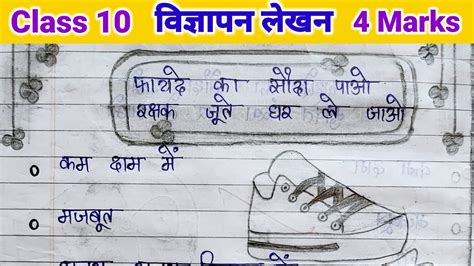 Class 10 विज्ञापन लेखन 4 Marks
फायदे का सौदा पाओ
रक्षक जूते घर ले जाओ
कम दाम में
मजबूत